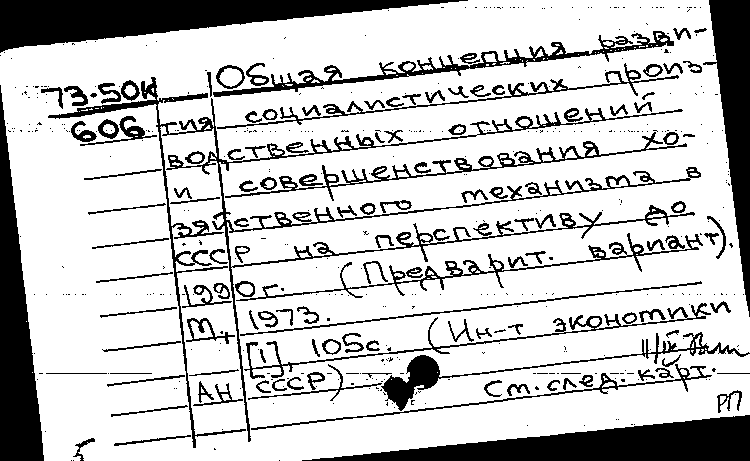 73.50к Общая концепция разви-
606 тия социалистических произ-
водственных отношений
и совершенствования хо-
зяйственного механизма в
СССР на перспективу до
1990 г. (Предварит. вариант).
М., 1973.
[1], 105с. (Ин-т экономики
АН СССР).
См. след. карт.
РП
5